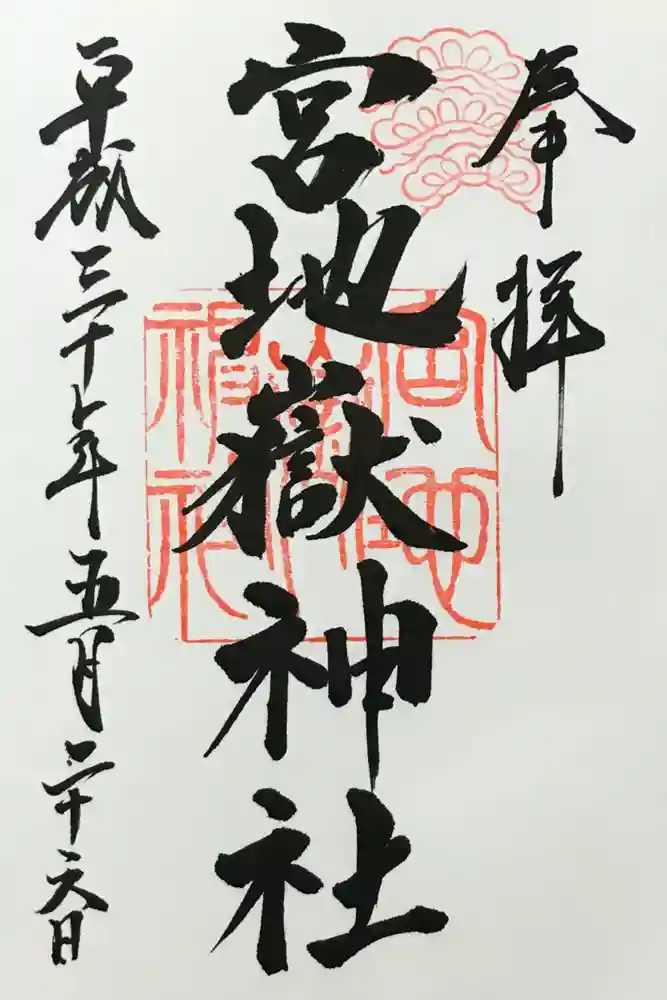 奉拝
宮地嶽神社
平成三十年五月二十六日
宮地嶽神社